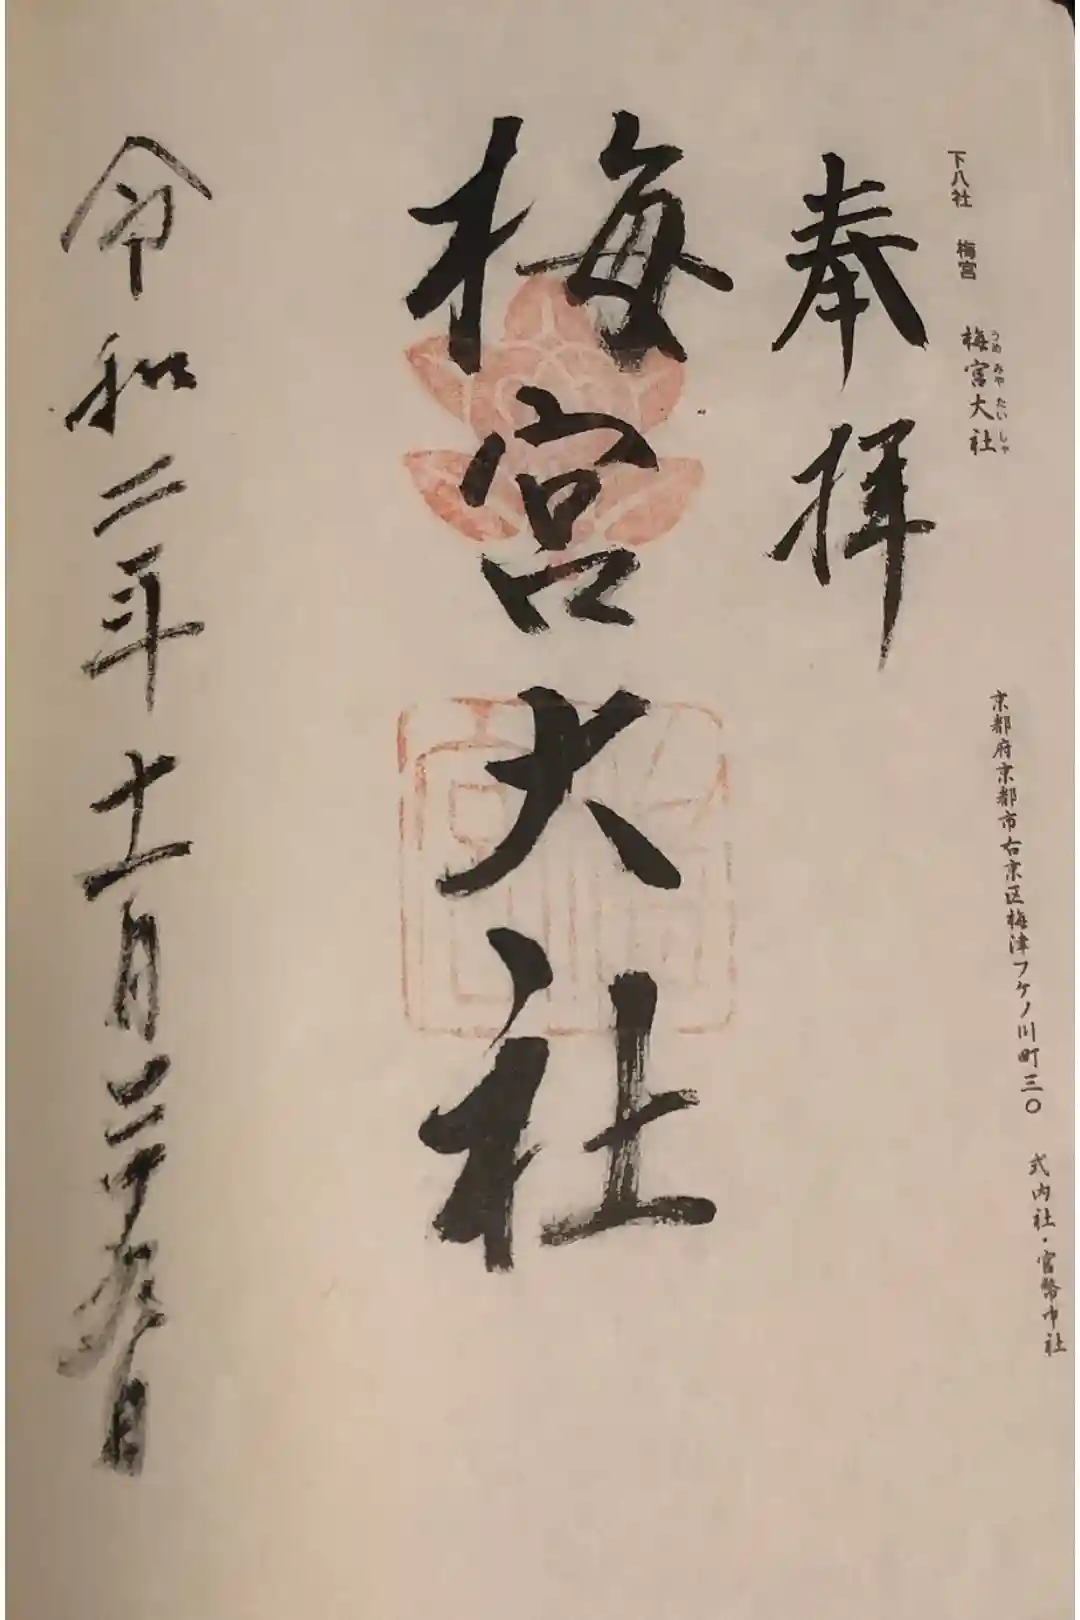 下八社 梅宮 梅宮大社
うめみやたいしゃ
京都府京都市右京区梅津フケノ川町三〇 式内社・官幣中社
奉拝
梅宮大社
令和二年十一月二十九日